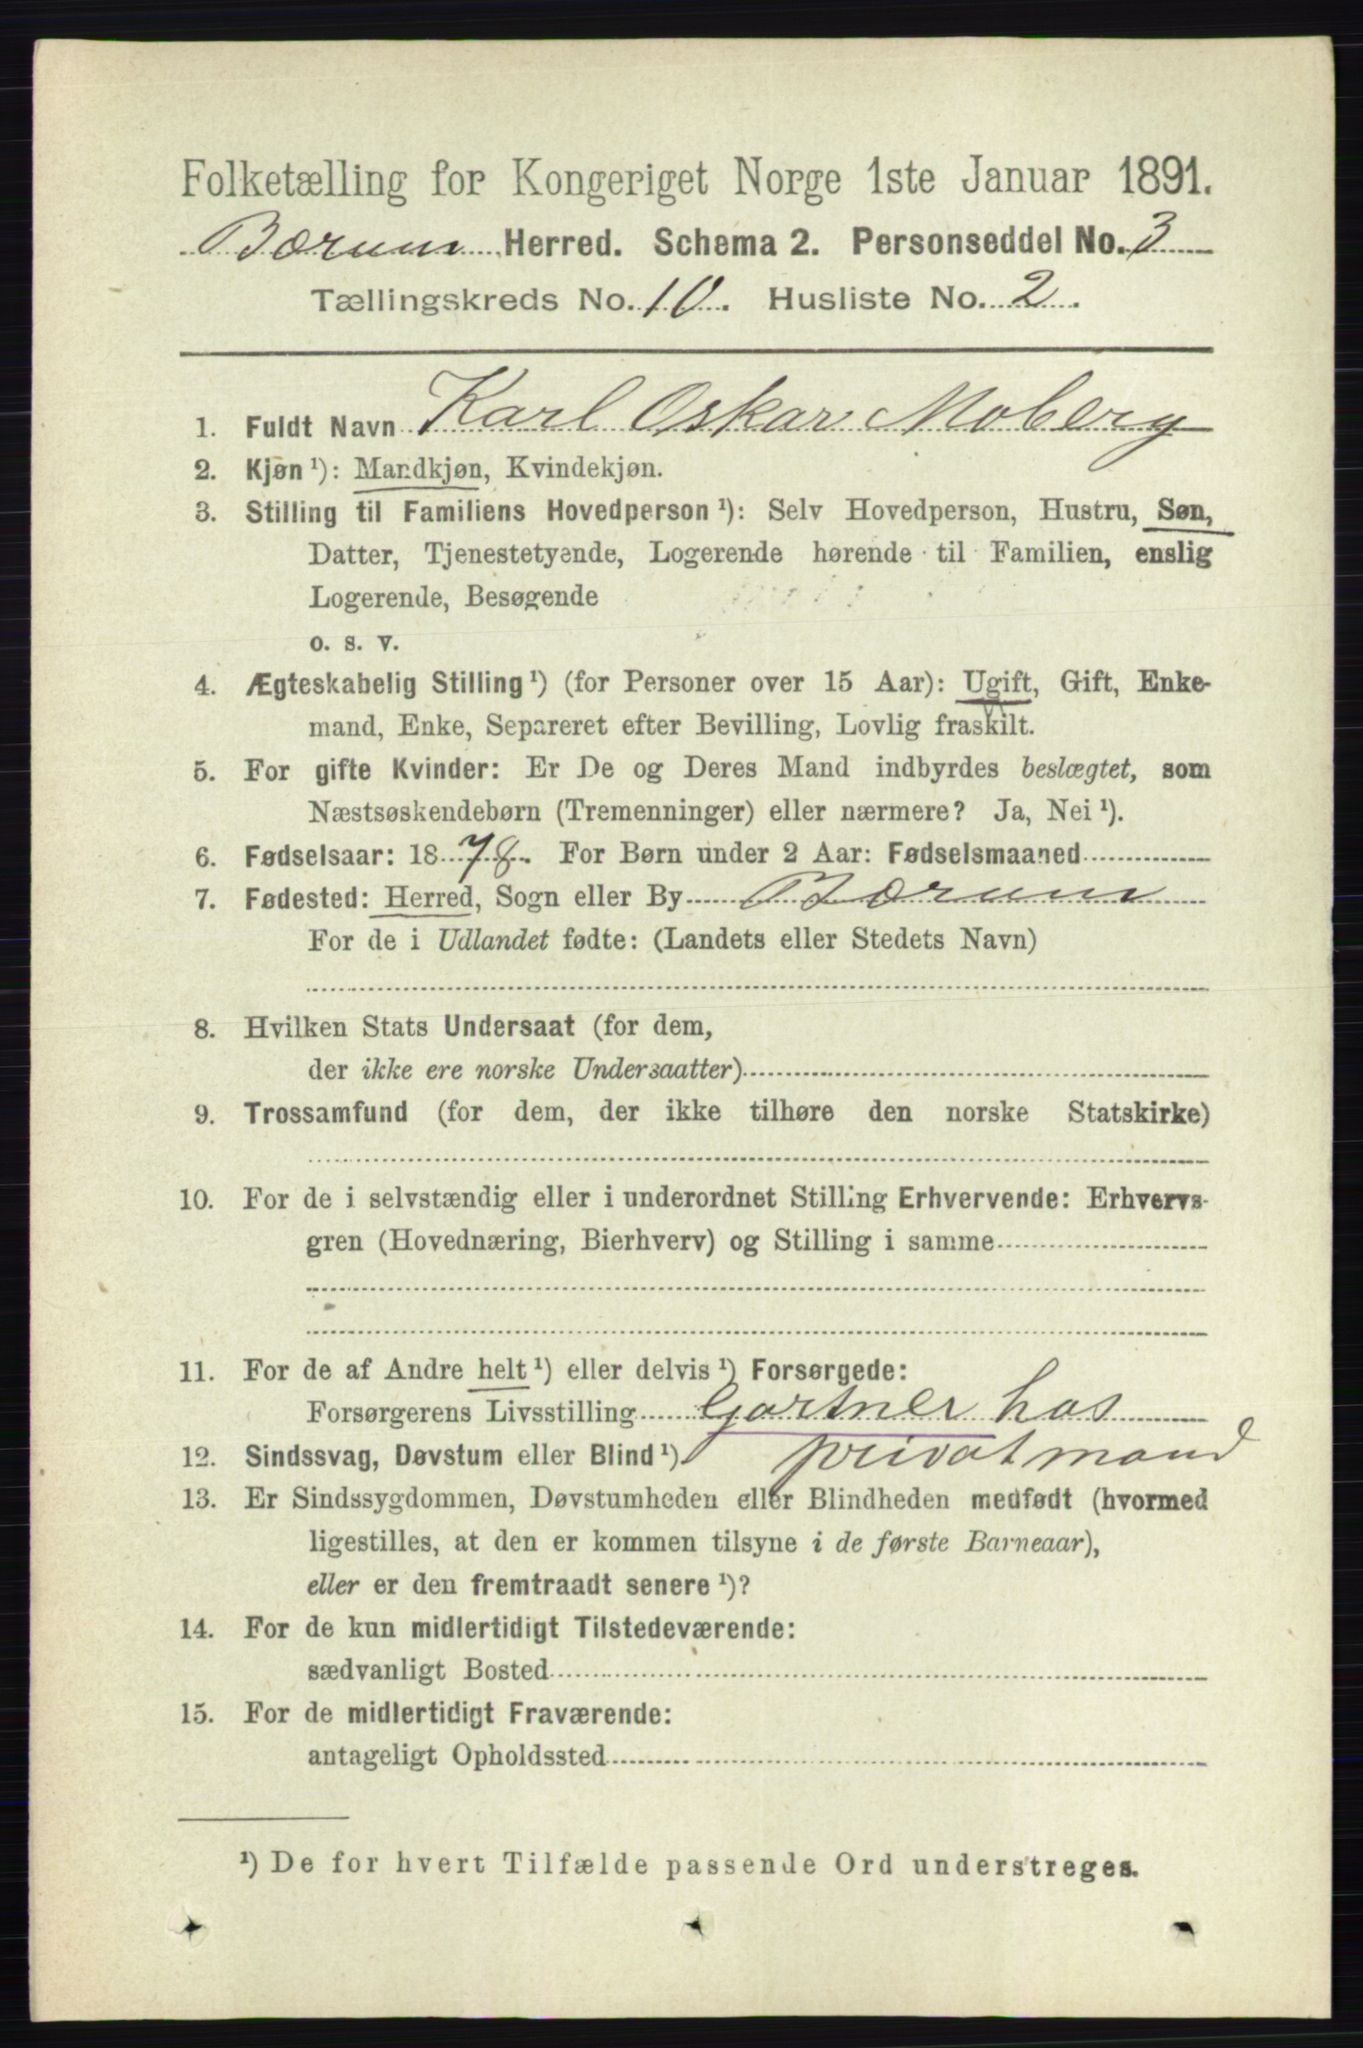 Folketælling for Kongeriget Norge 1ste Januar 1891.
Bærum Herred. Schema 2. Personseddel No. 3
Tællingskreds No. 10. Husliste No. 2.
1. Fuldt Navn Karl Oskar Moberg
2. Kjøn ¹): Mandkjøn, Kvindekjøn.
3. Stilling til Familiens Hovedperson ¹): Selv Hovedperson, Hustru, Søn,
Datter, Tjenestetyende, Logerende hørende til Familien, enslig
Logerende, Besøgende
o. s. v.
4. Ægteskabelig Stilling ¹) (for Personer over 15 Aar): Ugift, Gift, Enke-
mand, Enke, Separeret efter Bevilling, Lovlig fraskilt.
5. For gifte Kvinder: Er De og Deres Mand indbyrdes beslægtet, som
Næstsøskendebørn (Tremenninger) eller nærmere? Ja, Nei ¹).
6. Fødselsaar: 1878. For Børn under 2 Aar: Fødselsmaaned
7. Fødested: Herred, Sogn eller By Bærum
For de i Udlandet fødte: (Landets eller Stedets Navn)
8. Hvilken Stats Undersaat (for dem,
der ikke ere norske Undersaatter)
9. Trossamfund (for dem, der ikke tilhøre den norske Statskirke)
10. For de i selvstændig eller i underordnet Stilling Erhvervende: Erhvervs-
gren (Hovednæring, Bierhverv) og Stilling i samme
11. For de af Andre helt ¹) eller delvis ¹) Forsørgede:
Forsørgerens Livsstilling Gartner hos
12. Sindssvag, Døvstum eller Blind ¹) privatmand
13. Er Sindssygdommen, Døvstumheden eller Blindheden medfødt (hvormed
ligestilles, at den er kommen tilsyne i de første Barneaar),
eller er den fremtraadt senere ¹)?
14. For de kun midlertidigt Tilstedeværende:
sædvanligt Bosted
15. For de midlertidigt Fraværende:
antageligt Opholdssted
¹) De for hvert Tilfælde passende Ord understreges.